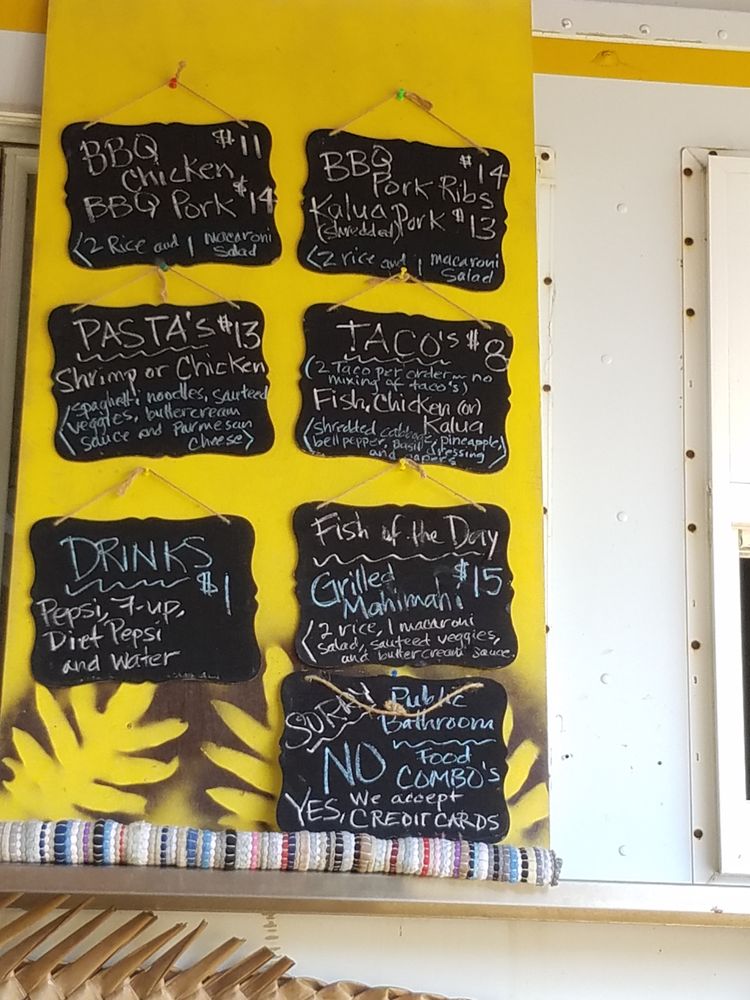 BBQ $11
Chicken
BBQ Pork $14
(2 Rice and 1 Macaroni
Salad
BBQ $14
Pork Ribs
Kalua Pork $13
(shredded)
(2 rice and 1 macaroni
Salad
PASTA'S $13
Shrimp or Chicken
(spaghetti noodles, sauteed
veggies, buttercream
sauce and Parmesan
cheese)
TACO'S $8
(2 Taco per order no
mixing of taco's)
Fish, Chicken (or)
Kalua
(shredded cabbage, pineapple,
bell pepper, basil dressing
and
DRINKS
$1
Pepsi, 7-up,
Diet Pepsi
and Water
Fish of the Day
Grilled $15
Mahimahi
(2 rice, 1 macaroni
salad, sauteed veggies,
and buttercream sauce.
SORRY Public
Bathroom
NO Food
COMBO'S
YES, We accept
CREDIT CARDS